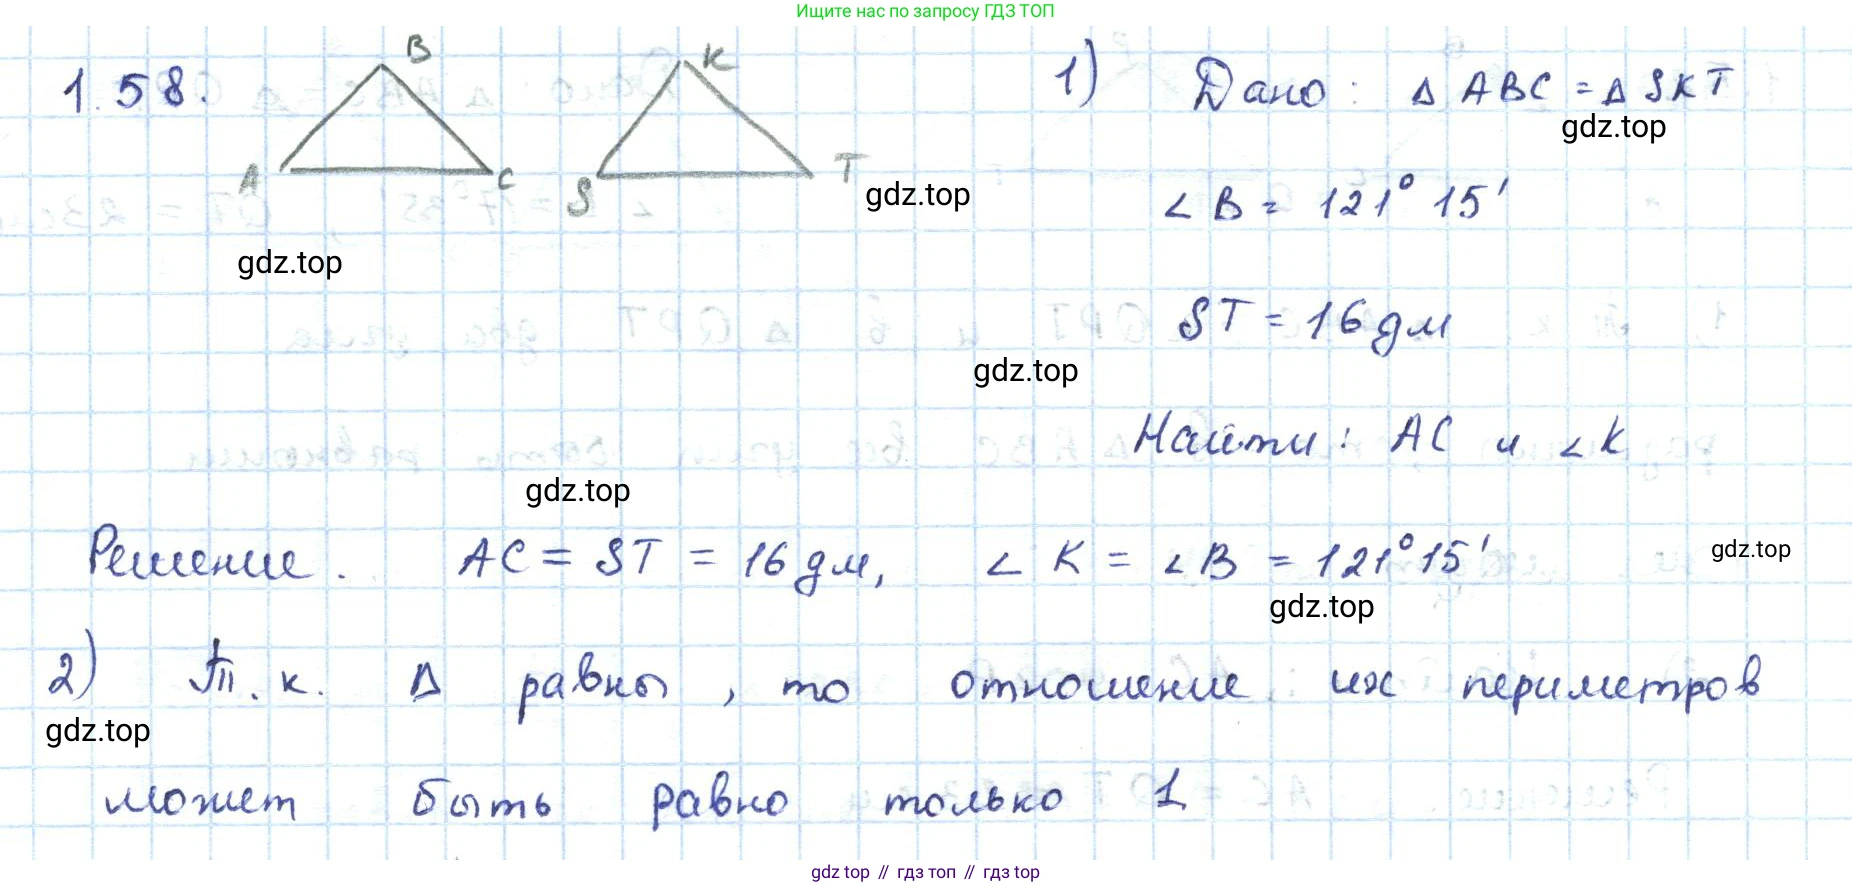 Ищите нас по запросу ГДЗ ТОП
1.58.
B
A
C
K
S
T
1) Дано: Δ ABC = Δ SKT
gdz.top
gdz.top
∠ B = 121° 15'
gdz.top
ST = 16 дм
gdz.top
Найти: AC и ∠K
gdz.top
Решение. AC = ST = 16 дм, ∠ K = ∠ B = 121° 15'
gdz.top
gdz.top
2) Т.к. Δ равны, то отношение их периметров
gdz.top
может быть равно только 1
gdz top // гдз топ // gdz top